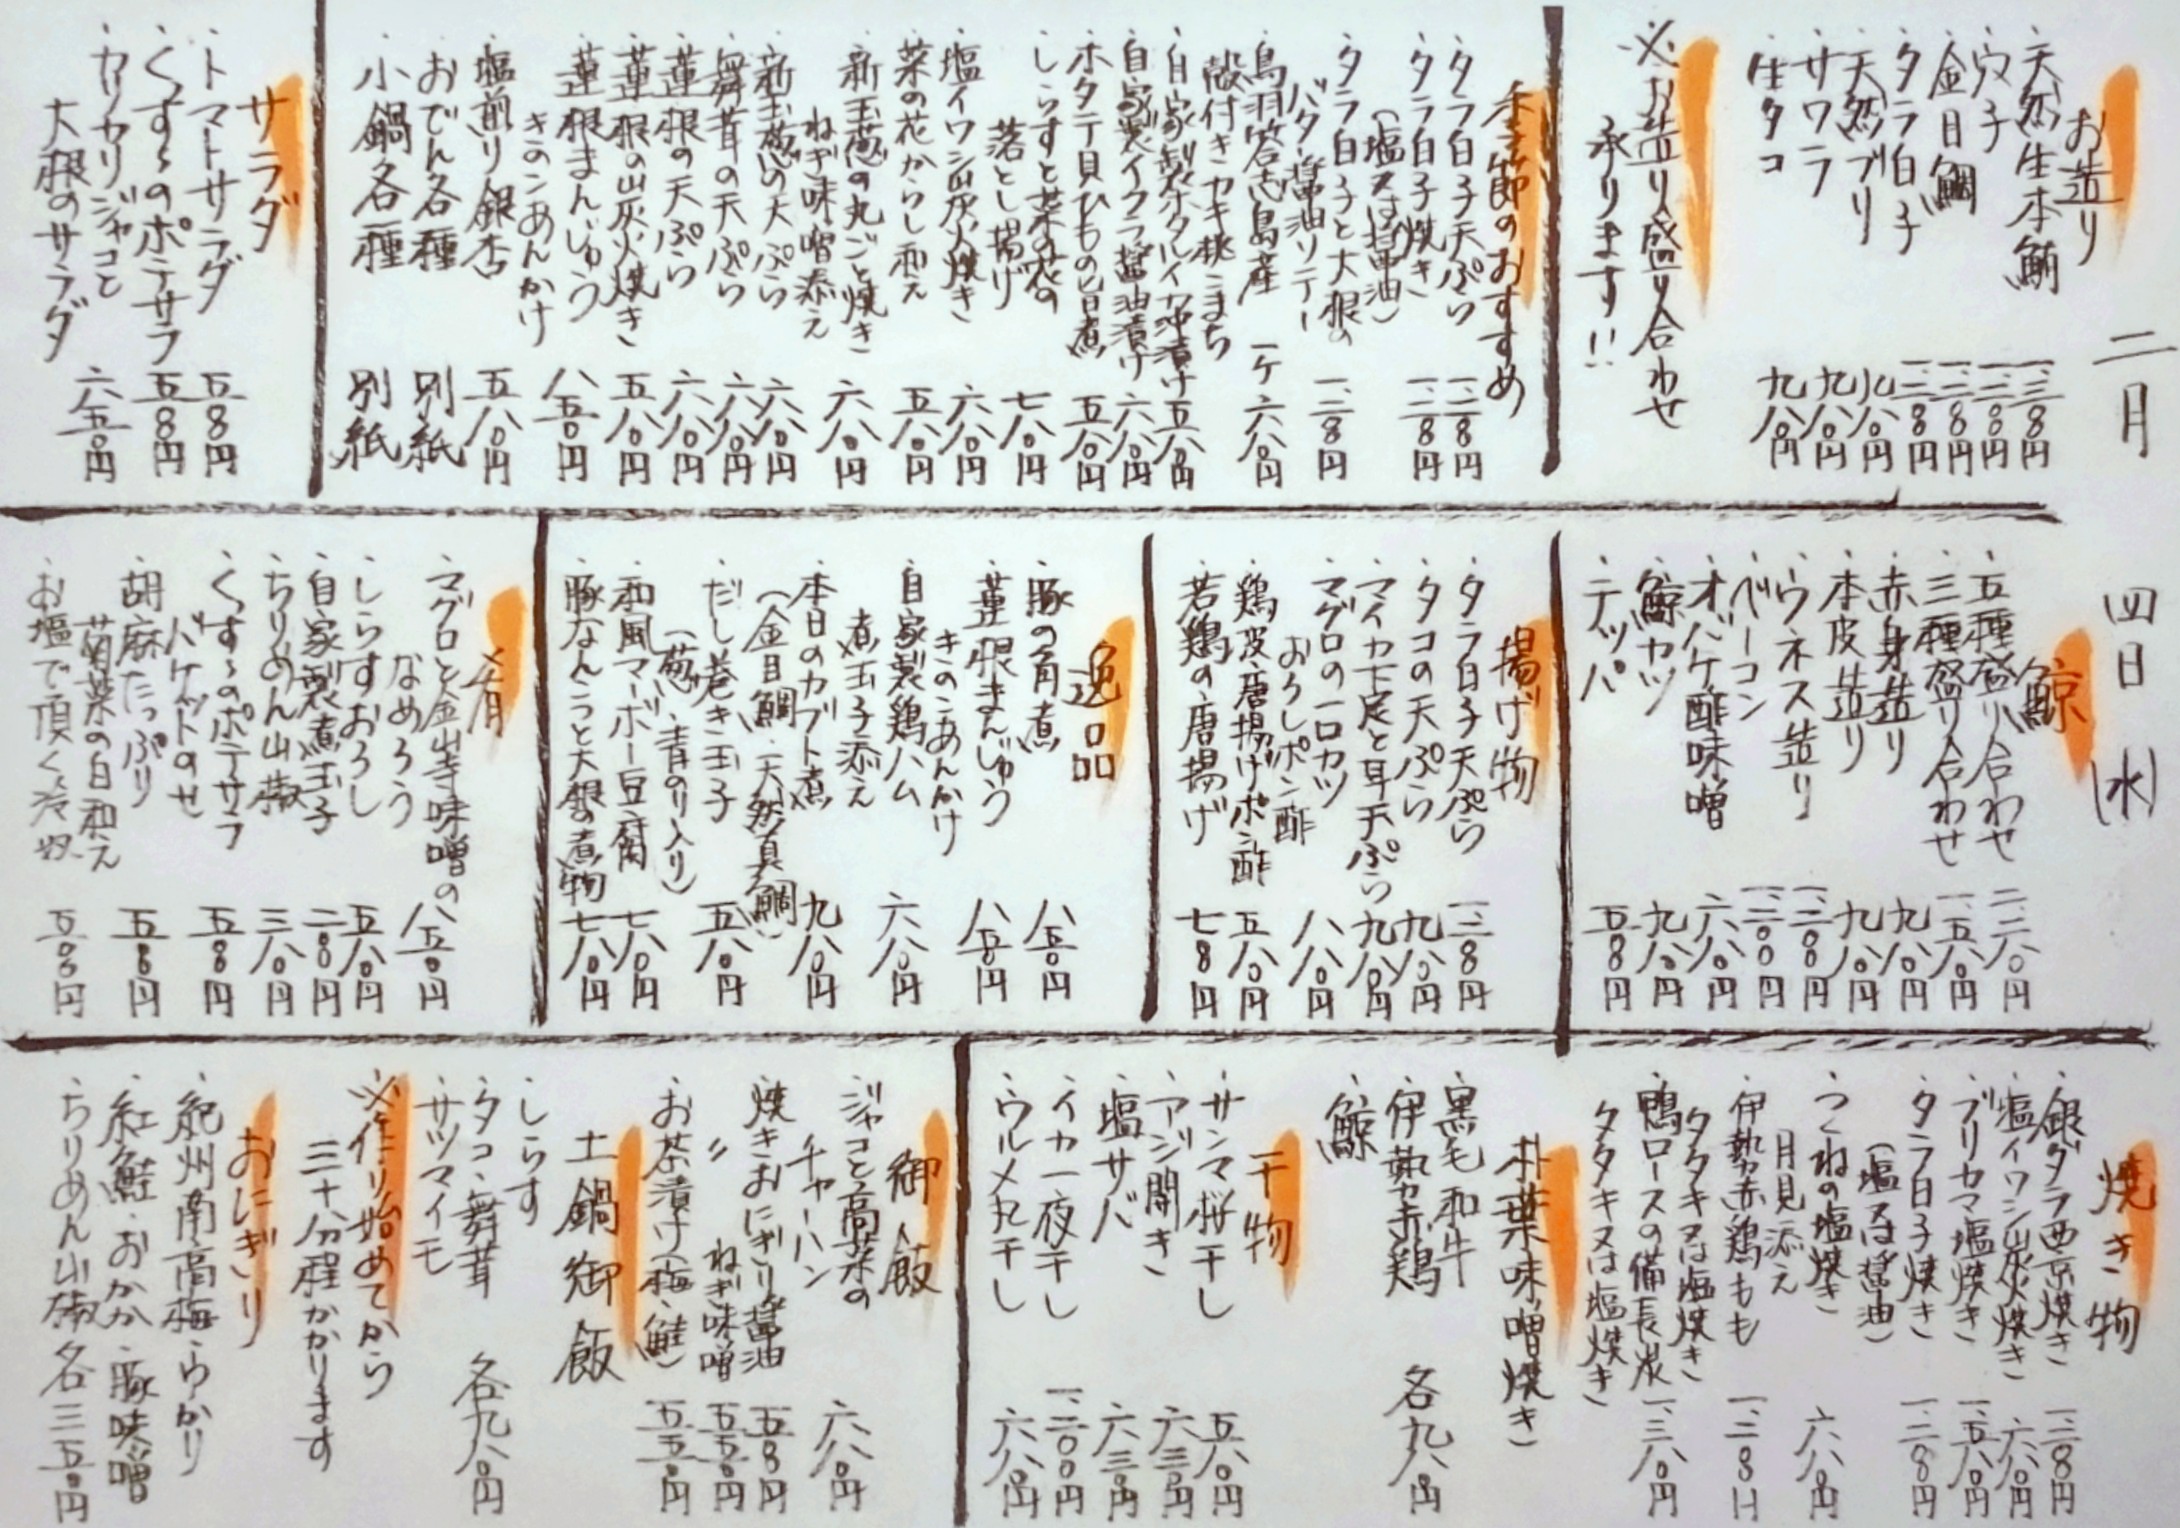 二月 四日(水)
お造り
・天然生本鮪 一、三〇〇円
・穴子 一、二〇〇円
・金目鯛 一、二〇〇円
・タラ白子 一、二〇〇円
・天然ブリ 九八〇円
・サワラ 九八〇円
・生タコ 九八〇円
※お造り盛り合わせ
承ります!!
季節のおすすめ
・タラ白子天ぷら 一、二〇〇円
・タラ白子焼き 一、二〇〇円
(塩又は醤油)
・タラ白子と大根の
バター醤油ソテー 一、二〇〇円
・鳥羽答志島産
殻付きカキ桃こまち 一ケ 六八〇円
・自家製ホタルイカ沖漬け 五八〇円
・自家製イクラ醤油漬け 六八〇円
・ホタテ貝ひもの旨煮 五八〇円
・しらすと菜の花の
落とし揚げ 七八〇円
・塩イワシ炭火焼き 六八〇円
・菜の花からし和え 五八〇円
・新玉葱の丸ごと焼き
ねぎ味噌添え 六八〇円
・新玉葱の天ぷら 六八〇円
・舞茸の天ぷら 六八〇円
・蓮根の天ぷら 六八〇円
・蓮根の炭火焼き 五八〇円
・蓮根まんじゅう
きのこあんかけ 八五〇円
・塩煎り銀杏 五八〇円
・おでん各種 別紙
・小鍋各種 別紙
サラダ
・トマトサラダ 五〇〇円
・くずし のポテサラ 五〇〇円
・カリカリジャコと
大根のサラダ 六五〇円
鯨
・五種盛り合わせ 二、二八〇円
・三種盛り合わせ 一、五八〇円
・赤身造り 九八〇円
・本皮造り 九八〇円
・ウネス造り 一、二〇〇円
・ベーコン 一、二〇〇円
・オバケ酢味噌 六八〇円
・鯨カツ 九八〇円
・テッパ 五〇〇円
揚げ物
・タラ白子天ぷら 一、二〇〇円
・タコの天ぷら 九八〇円
・マイカ下足と耳天ぷら 九八〇円
・マグロの一口カツ
おろしポン酢 八八〇円
・鶏皮唐揚げポン酢 五八〇円
・若鶏の唐揚げ 七〇〇円
逸品
・豚の角煮 八五〇円
・蓮根まんじゅう
きのこあんかけ 八五〇円
・自家製鶏ハム
煮玉子添え 六八〇円
・本日のカブト煮 九八〇円
(金目鯛・天然真鯛)
・だし巻き玉子 五八〇円
(葱・青のり入り)
・和風マーボー豆腐 七八〇円
・豚なんこつと大根の煮物 七八〇円
肴
・マグロと金山寺味噌の
なめろう 八五〇円
・しらすおろし 五八〇円
・自家製煮玉子 二〇〇円
・ちりめん山椒 三八〇円
・くずし のポテサラ
バケットのせ 五〇〇円
・胡麻たっぷり
菊菜の白和え 五〇〇円
・お塩で頂く冷奴 五〇〇円
焼き物
・銀ダラ西京焼き 一、三〇〇円
・塩イワシ炭火焼き 六八〇円
・ブリカマ塩焼き 一、五八〇円
・タラ白子焼き 一、二〇〇円
(塩又は醤油)
・つくねの塩焼き
月見添え 六八〇円
・伊勢赤鶏もも
タタキ又は塩焼き 一、二〇〇円
・鴨ロースの備長炭
タタキ又は塩焼き 一、三八〇円
朴葉味噌焼き
・黒毛和牛
・伊勢赤鶏 各九八〇円
・鯨
干物
・サンマ桜干し 五八〇円
・アジ開き 六三〇円
・塩サバ 六三〇円
・イカ一夜干し 一、二〇〇円
・ウルメ丸干し 六八〇円
御飯
・ジャコと高菜の
チャーハン 六八〇円
・焼きおにぎり醤油 五〇〇円
・〃 ねぎ味噌 五五〇円
・お茶漬け(梅・鮭) 五五〇円
土鍋御飯
・しらす
・タコ・舞茸 各九八〇円
・サツマイモ
※作り始めてから
三十分程かかります
おにぎり
・紀州南高梅・ゆかり
・紅鮭・おかか・豚味噌
・ちりめん山椒 各三五〇円